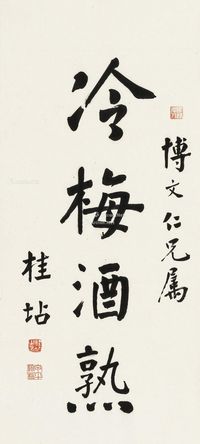 博文仁兄属
冷梅酒熟
桂坫